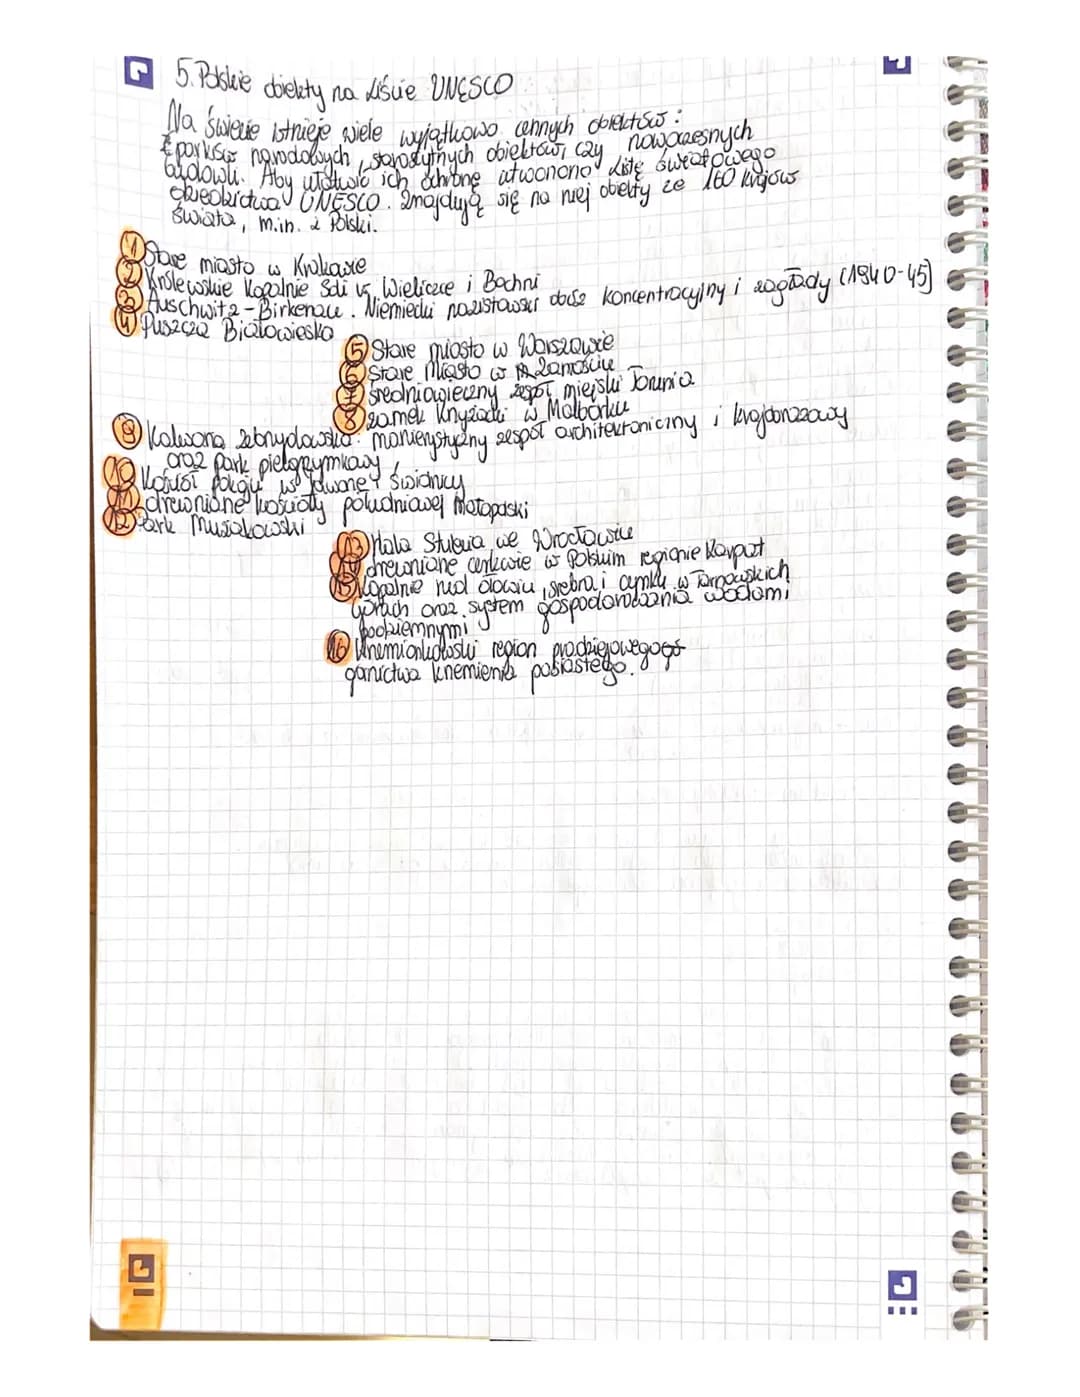 5. Polskie obiekty na Liście UNESCO
Na świecie istnieje wiele wyjątkowo cennych obiektów:
parków narodowych, starożytnych obiektów, czy nowoczesnych
budowli. Aby ułatwić ich ochronę utworzono Listę Światowego
Dziedzictwa UNESCO. Znajdują się na niej obiekty ze 160 krajów
świata, m.in. z Polski.
1 Stare miasto w Krakowie
2 Królewskie Kopalnie Soli w Wieliczce i Bochni
3 Auschwitz-Birkenau. Niemiecki nazistowski obóz koncentracyjny i zagłady (1940-45)
4 Puszcza Białowieska
5 Stare miasto w Warszawie
6 Stare Miasto w Zamościu
7 średniowieczny zespół miejski Torunia
8 zamek Krzyżacki w Malborku
9 Kalwaria Zebrzydowska: manierystyczny zespół architektoniczny i krajobrazowy
oraz park pielgrzymkowy
10 Kościół Pokoju w Jaworze i Świdnicy
11 drewniane kościoły południowej Małopolski
12 Park Mużakowski
13 Hala Stulecia we Wrocławiu
14 drewniane cerkwie w Polskim regionie Karpat
15 Kopalnie rud ołowiu, srebra i cynku w Tarnowskich
Górach oraz system gospodarowania wodami
podziemnymi
16 Krzemionkowski region pradziejowego gó-
rnictwa krzemienia pasiastego.